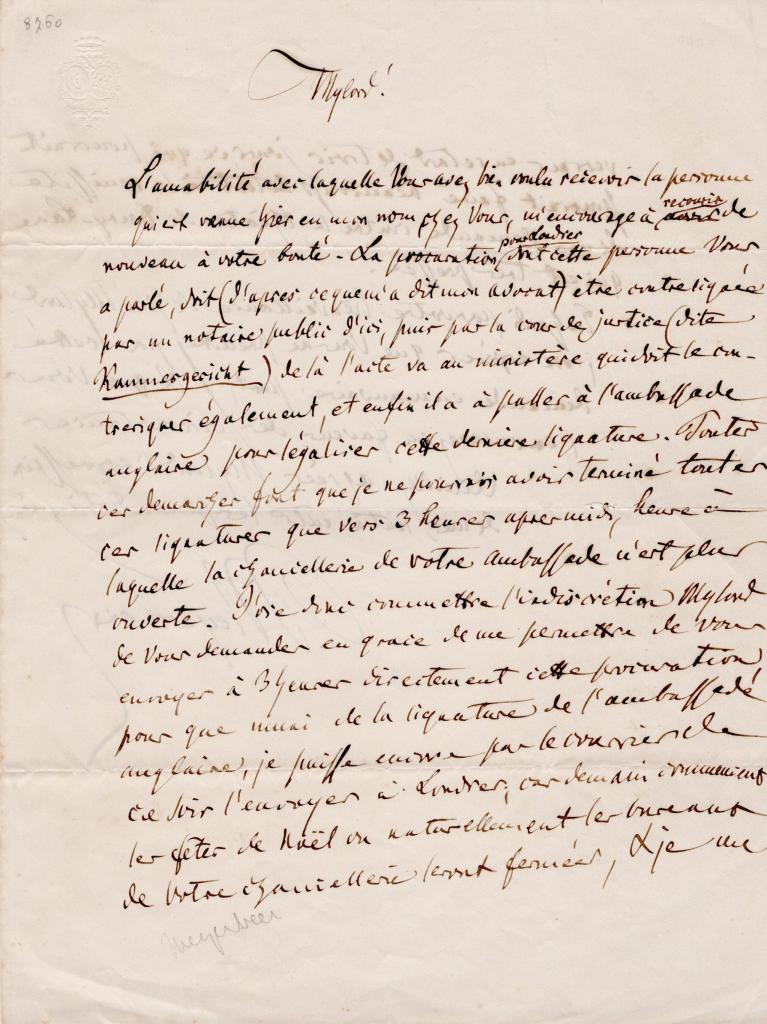 8260
Mylord!
L'amabilité avec laquelle Vous avez bien voulu recevoir la personne
qui est venue hier en mon nom chez Vous, m'encourage à recourir de
nouveau à votre bonté. La procuration pour Londres dont cette personne Vous
a parlé, doit (d'après ce que m'a dit mon avocat) être contresignée
par un notaire public d'ici, puis par la cour de justice (dite
Kammergericht) de là l'acte va au ministère qui doit le con-
tresigner également, et enfin il a à passer à l'ambassade
anglaise pour légaliser cette derniere signature. Toutes
ces demarches font que je ne pourrais avoir terminé toutes
ces signatures que vers 3 heures apres midi, heure à
laquelle la chancellerie de votre ambassade n'est plus
ouverte. J'ose donc commettre l'indiscrétion Mylord
de Vous demander en grace de me permettre de vous
envoyer à 3 heures directement cette procuration
pour que muni de la signature de l'ambassade
anglaise, je puisse encore par le courrier de
ce soir l'envoyer à Londres, car demain commencent
les fêtes de Noël ou naturellement les bureaux
de Votre chancellerie seront fermées, & je me
Meyerbeer